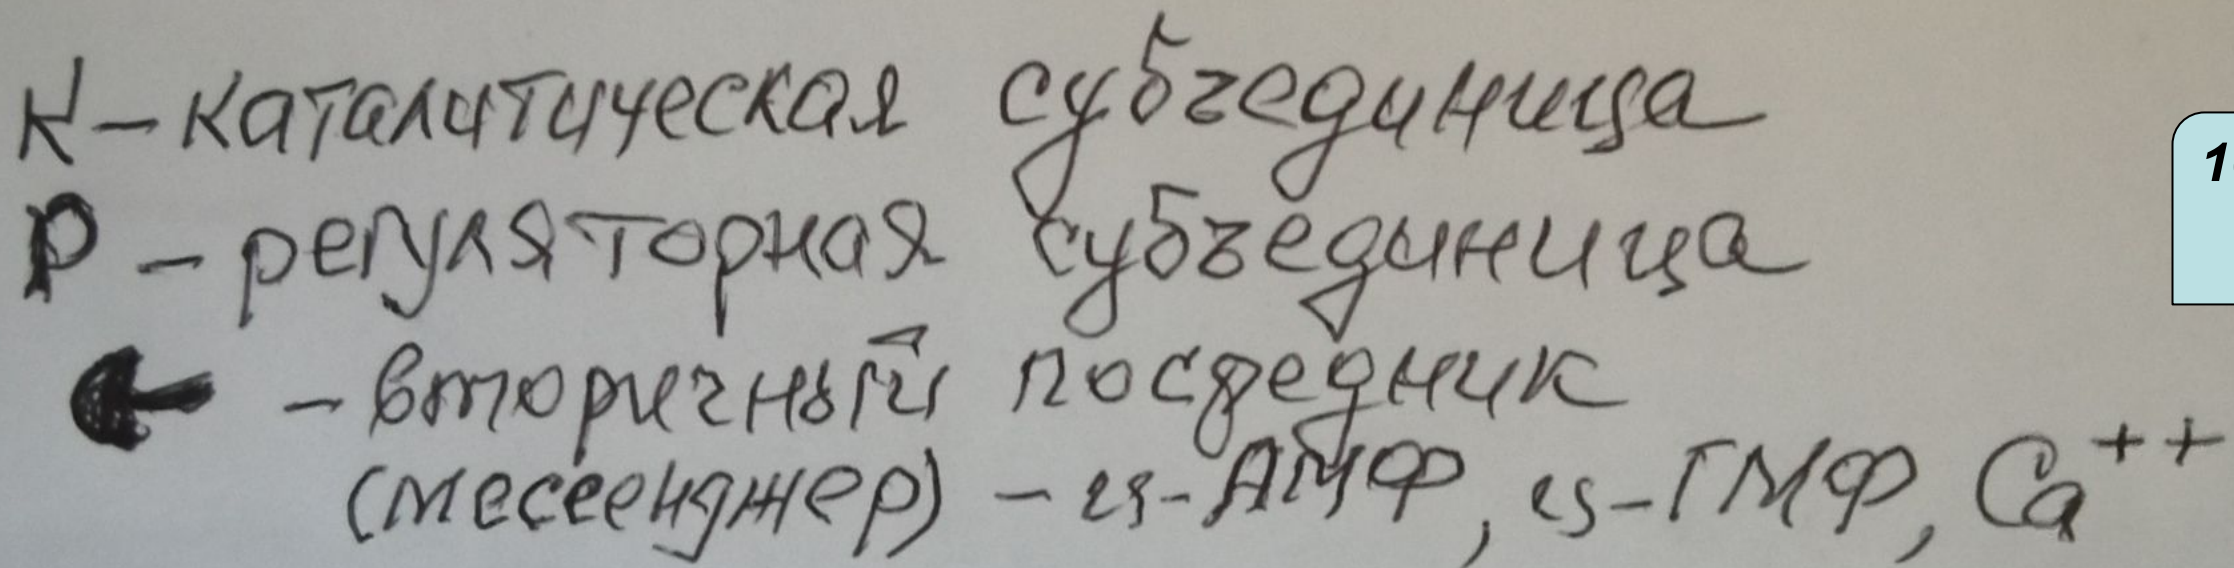 К – каталитическая субъединица
Р – регуляторная субъединица
– вторичный посредник
(мессенджер) – ц-АМФ, ц-ГМФ, Ca++